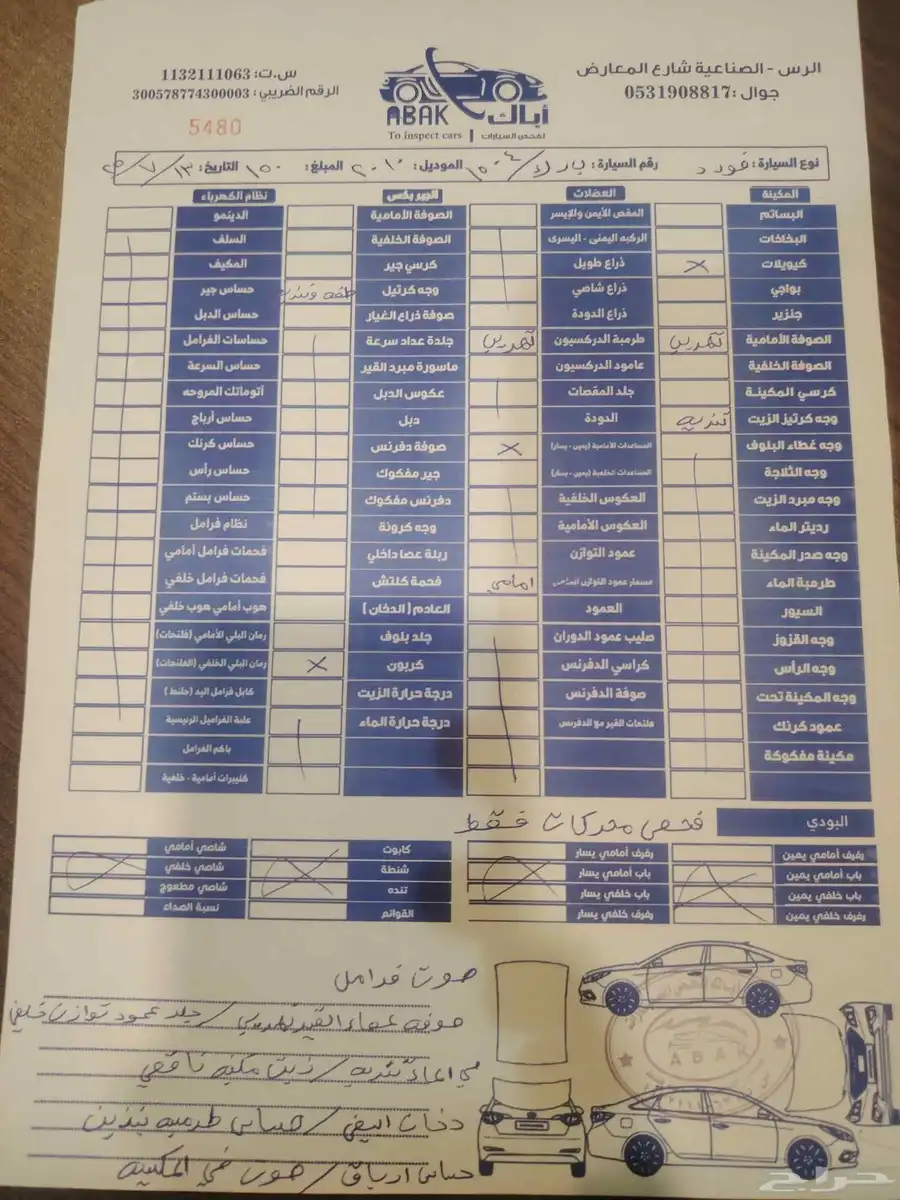 الرس - الصناعية شارع المعارض
جوال :0531908817
أباك ABAK
لفحص السيارات | To inspect cars
س.ت: 1132111063
الرقم الضريبي: 300578774300003
5480
نوع السيارة: فورد رقم السيارة: الموديل: ٢٠١٠ المبلغ: ١٥٠ التاريخ:
المكينة
البساتم
البخاخات
كيويلات ×
بواجي
جنزير
الصوفة الأمامية تهريب
الصوفة الخلفية
كرسي المكينة
وجه كرتيز الزيت تنديه
وجه غطاء البلوف
وجه الثلاجة
وجه مبرد الزيت
رديتر الماء
وجه صدر المكينة
طرمبة الماء
السيور
وجه القزوز
وجه الرأس
وجه المكينة تحت
عمود كرنك
مكينة مفكوكة
العضلات
المقص الأيمن والإيسر
الركبه اليمنى - اليسرى
ذراع طويل
ذراع شاصي
ذراع الدودة
طرمبة الدركسيون تهريب
عامود الدركسيون
جلد المقصات
الدودة
المساعدات الأمامية (يمين - يسار) ×
المساعدات الخلفية (يمين - يسار)
العكوس الخلفية
العكوس الأمامية
عمود التوازن
مسمار عمود التوازن امامي
العمود
صليب عمود الدوران
كراسي الدفرنس
صوفة الدفرنس
فلنجات القير مع الدفرنس
الجير بكس
الصوفة الأمامية
الصوفة الخلفية
كرسي جير
وجه كرتيل
صوفة ذراع الغيار
جلدة عداد سرعة
ماسورة مبرد القير
عكوس الدبل
دبل
صوفة دفرنس
جير مفكوك
دفرنس مفكوك
وجه كرونة
ربلة عصا داخلي
فحمة كلتش
العادم ( الدخان )
جلد بلوف
كربون ×
درجة حرارة الزيت
درجة حرارة الماء
نظام الكهرباء
الدينمو
السلف
المكيف
حساس جير
حساس الدبل
حساسات الفرامل
حساس السرعة
أتوماتك المروحه
حساس أرباج
حساس كرنك
حساس رأس
حساس بستم
نظام فرامل
فحمات فرامل أمامي
فحمات فرامل خلفي
هوب أمامي هوب خلفي
رمان البلي الأمامي (فلنجات)
رمان البلي الخلفي (الفلنجات)
كابل فرامل اليد ( جلنط )
علبة الفراميل الرئيسية
باكم الفرامل
كليبرات أمامية - خلفية
البودي
فحص محركات فقط
رفرف أمامي يمين
باب أمامي يمين
باب خلفي يمين
رفرف خلفي يمين
رفرف أمامي يسار
باب أمامي يسار
باب خلفي يسار
رفرف خلفي يسار
كابوت
شنطة
تنده
القوائم
شاصي أمامي
شاصي خلفي
شاصي مطعوج
نسبة الصداء
صوت فرامل
صوفه عصاء القير تهريب / جلد عمود توازن خلفي
تنديه / زيت مكينه ناقص
دخان ابيض / حساس طرمبه بنزين
حساس ارباق / صوت في المكينه
ABAK
حراج